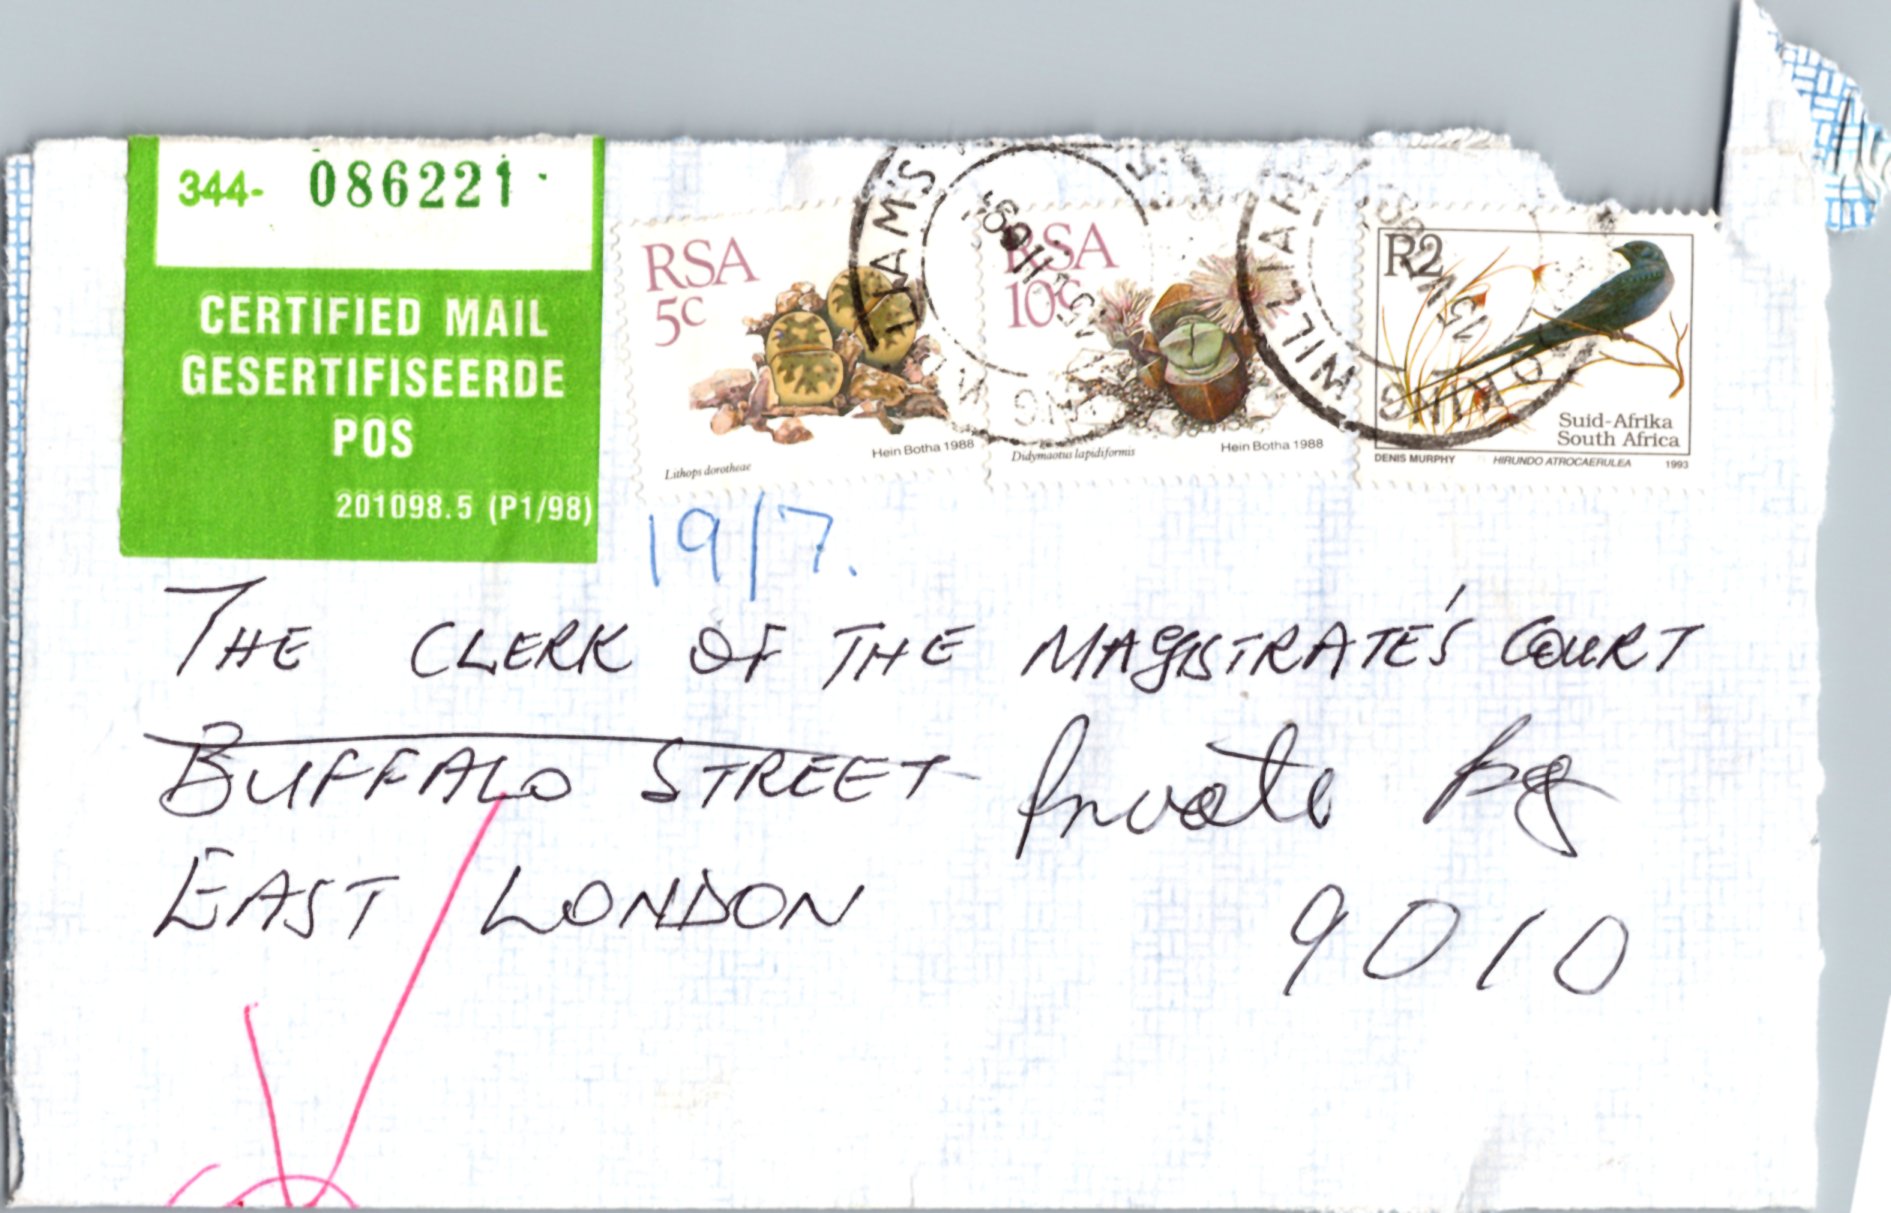 344- 086221
CERTIFIED MAIL
GESERTIFISEERDE
POS
201098.5 (P1/98)
RSA
5c
Lithops dorotheae
Hein Botha 1988
RSA
10c
Didymaotus lapidiformis
Hein Botha 1988
R2
Suid-Afrika
South Africa
DENIS MURPHY HIRUNDO ATROCAERULEA 1993
KING WILLIAM'S
19/7.
THE CLERK OF THE MAGISTRATE'S COURT
BUFFALO STREET Private Bag
EAST LONDON 9010